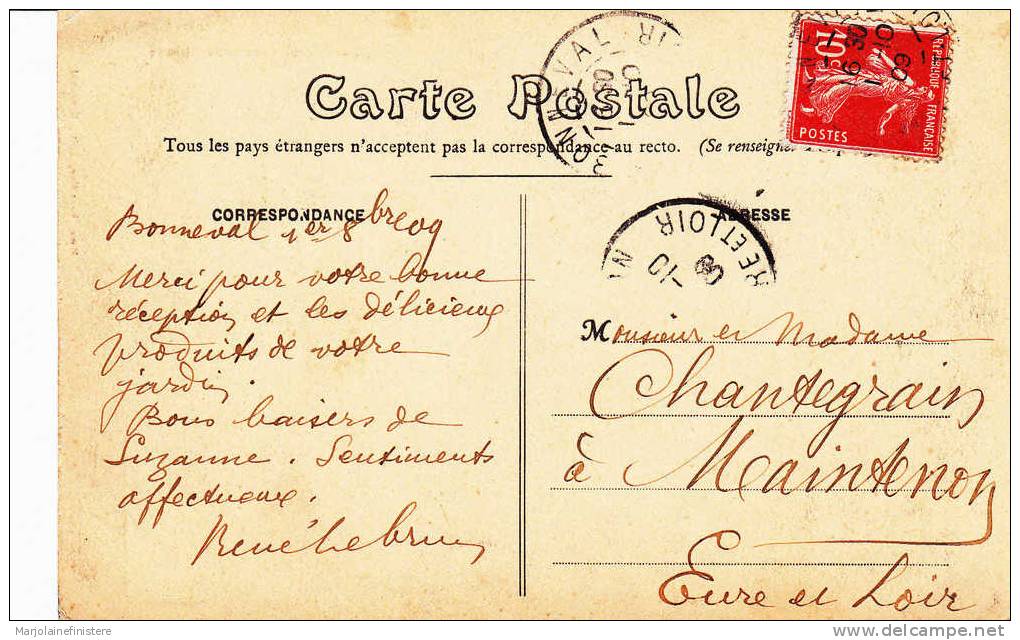 Carte Postale
Tous les pays étrangers n'acceptent pas la correspondance au recto. (Se renseigner
CORRESPONDANCE
Bonneval 1er 8bre 09
Merci pour votre bonne
réception et les délicieux
produits de votre
jardin.
Bons baisers de
Suzanne. Sentiments
affectueux.
René Lebrun
ADRESSE
Monsieur et Madame
Chantegrain
à Maintenon
Eure et Loir
REPUBLIQUE FRANÇAISE
10c
POSTES
BONNEVAL
RE ET LOIR
Marjolainefinistere
delcampe.net